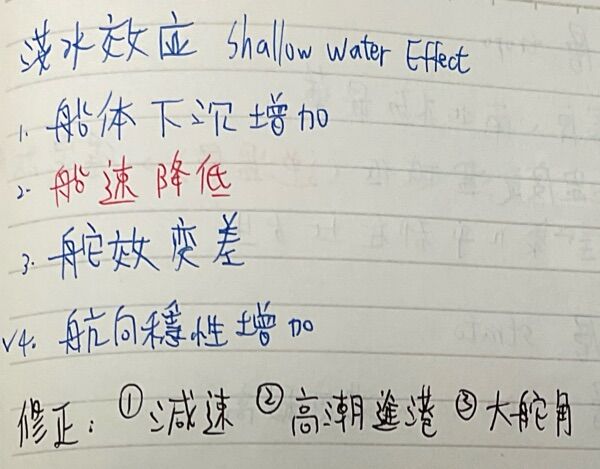 浅水效应 Shallow Water Effect
1. 船体下沉增加
2. 船速降低
3. 舵效变差
√4. 航向穩性增加
修正: ①减速 ②高潮進港 ③大舵角